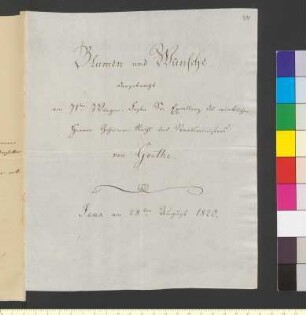 Blumen und Wünsche
dargebracht
am 71ten Wiegen-Feste Sr. Excellenz des wirklichen
Herrn Geheimen Raths und Staatsministers
von Goethe.
Jena am 28ten August 1820.